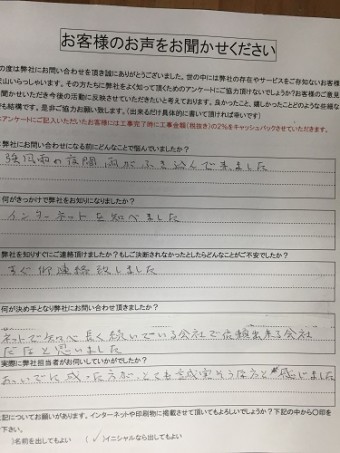 お客様のお声をお聞かせください
の度は弊社にお問い合わせを頂き誠にありがとうございました。世の中には弊社の存在やサービスをご存知ないお客様
沢山いらっしゃいます。その方たちに弊社をよく知って頂くためのアンケートにご協力頂けないでしょうか?お客様のご意見
聞かせいただき今後の活動に反映させていただきたいと考えております。良かったこと、嬉しかったことどのような些細な
でも結構です。是非ご協力お願い致します。(出来るだけ具体的に書いて頂ければ幸いです)
アンケートにご記入いただいたお客様には工事完了時に工事金額(税抜き)の2%をキャッシュバックさせていただきます。
弊社にお問い合わせになる前にどんなことで悩んでいましたか?
強風雨の夜間雨がふき込んで来ました
何がきっかけで弊社をお知りになりましたか?
インターネットを知べました
弊社を知りすぐにご連絡頂けましたか?もしご決断されなかったとしたらどんなことがご不安でしたか?
すぐ御連絡致しました
何が決め手となり弊社にお問い合わせ頂きましたか?
ネットで知べ長く続いでいる会社で信頼出来る会社
だなと思いました
実際に弊社担当者がお伺いしていかがでしたか?
おいでに成った方が、とても誠実そうな方と感じました
記についてお願いがあります。インターネットや印刷物に掲載させて頂いてもよろしいでしょうか?下記の中から〇印を
下さい。
)名前を出してもよい (✓)イニシャルなら出してもよい